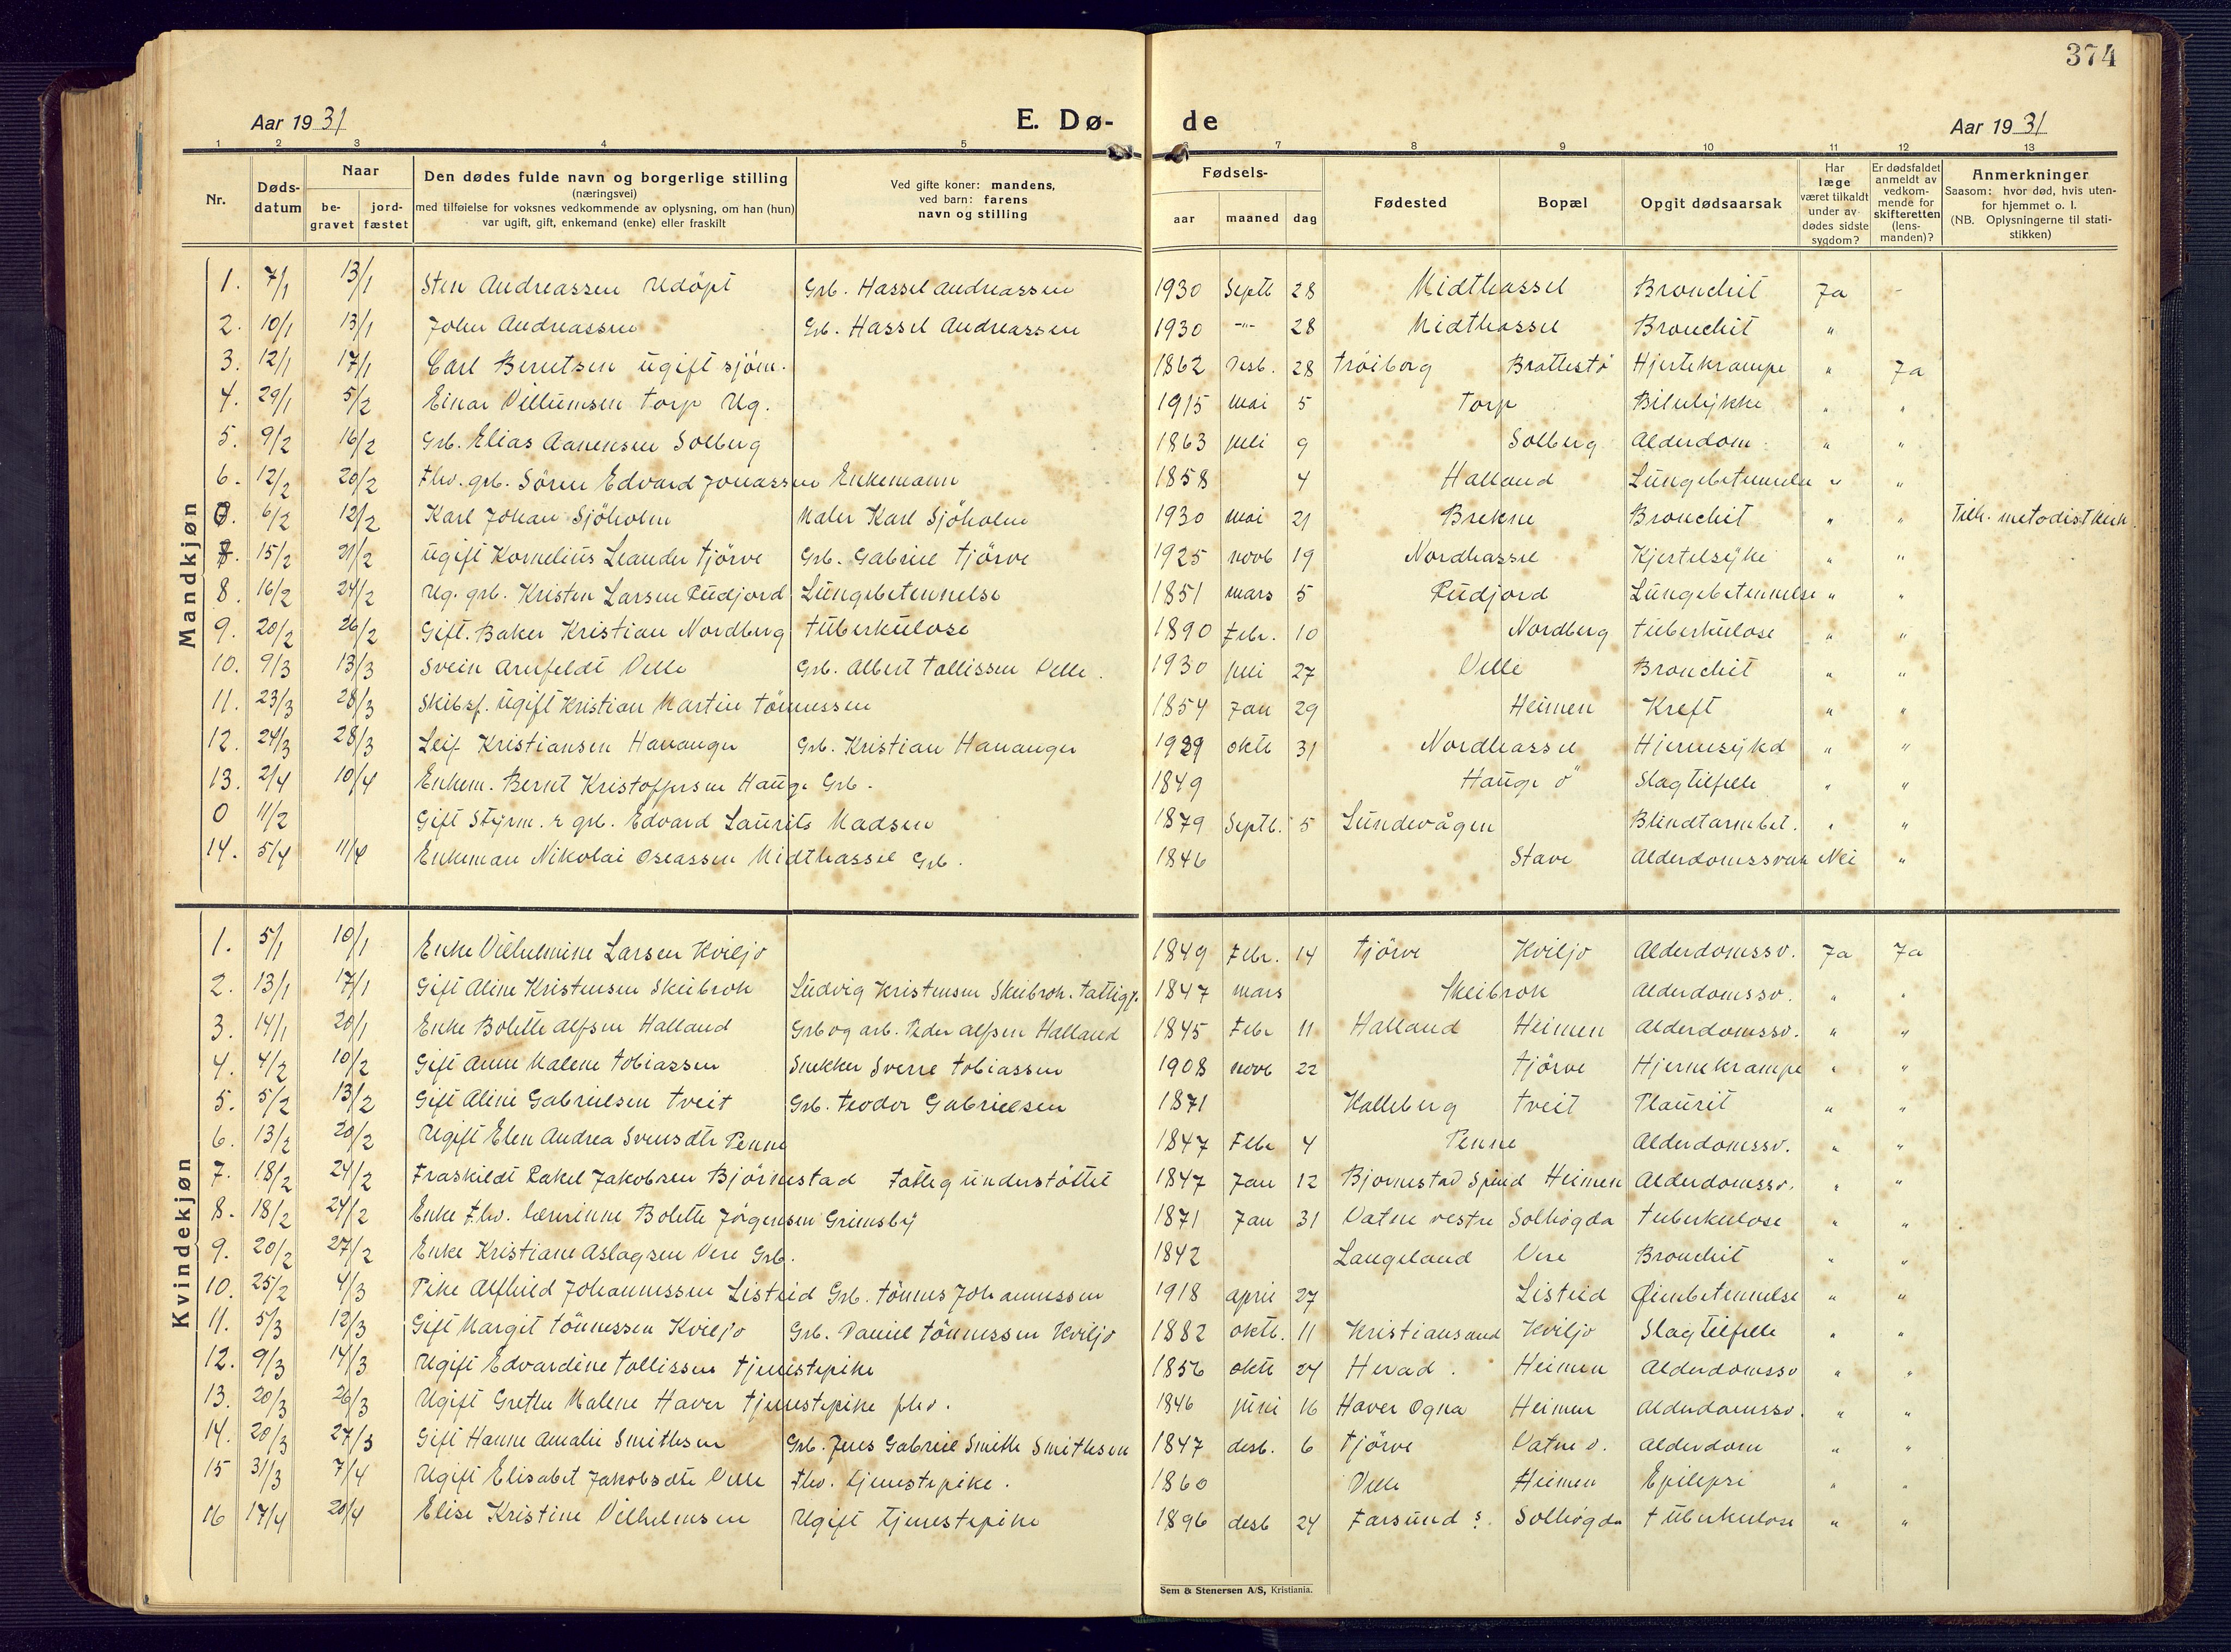 374
Aar 1931 E. Dø- de Aar 1931
1 2 3 4 5 6 7 8 9 10 11 12 13
Nr. Døds-datum Naar be-gravet jord-fæstet Den dødes fulde navn og borgerlige stilling (næringsvei) med tilføielse for voksnes vedkommende av oplysning, om han (hun) var ugift, gift, enkemand (enke) eller fraskilt Ved gifte koner: mandens, ved barn: farens navn og stilling Fødsels- aar maaned dag Fødested Bopæl Opgit dødsaarsak Har læge været tilkaldt under av-dødes sidste sygdom? Er dødsfaldet anmeldt av vedkom-mende for skifteretten (lens-manden)? Anmerkninger Saasom: hvor død, hvis uten-for hjemmet o. l. (NB. Oplysningerne til stati-stikken)
Mandkjøn
1. 7/1 13/1 Sten Andreassen Udöpt Grb. Hassel Andreassen 1930 Septb 28 Midthassel Bronchit Ja -
2. 10/1 13/1 John Andreassen Grb. Hassel Andreassen 1930 -"- 28 Midthassel Bronchit "
3. 12/1 17/1 Carl Berntsen ugift sjöm. 1862 Desb. 28 Tröiborg Brattestö Hjertekrampe " Ja
4. 29/1 5/2 Einar Villumsen Torp Ug. 1915 mai 5 Torp Bilulykke " "
5. 9/2 16/2 Grb. Elias Aanensen Solberg 1863 juli 9 Solberg Alderdom " "
6. 12/2 20/2 Fhv. grb. Sören Edvard Jonassen Enkemann 1858 4 Halland Lungebetennelse " "
0. 6/2 12/2 Karl Johan Sjöholm Maler Karl Sjöholm 1930 mai 21 Brekne Bronchit " " Tilh. metodistkirk.
7. 15/2 21/2 Ugift Kornelius Leander Tjörve Grb. Gabriel Tjörve 1925 novb 19 Nordhassel Kjertelsyke " "
8. 16/2 24/2 Ug. grb. Kristen Larsen Rudjord Lungebetennelse 1851 mars 5 Rudjord Lungebetennelse " "
9. 20/2 26/2 Gift. Baker Kristian Nordberg Tuberkulose 1890 Febr. 10 Nordberg Tuberkulose " "
10. 9/3 13/3 Svein Arnfeldt Velle Grb. Albert Tollissen Velle. 1930 juli 27 Velle Bronchit " "
11. 23/3 28/3 Skibsf. ugift Kristian Martin Tönnessen 1854 Jan 29 Heimen Kreft " "
12. 24/3 28/3 Leif Kristiansen Hananger Grb. Kristian Hananger 1929 oktb 31 Nordhassel Hjernesykd " "
13. 2/4 10/4 Enkem. Bernt Kristoffersen Hauge Grb. 1849 Hauge ö Slagtilfelle " "
0 11/2 Gift Styrm. & grb. Edvard Laurits Madsen 1879 Septb. 5 Lundevågen Blindtarmbet. " "
14. 5/4 11/4 Enkeman Nikolai Oseassen Midthassel Grb. 1846 Stave Alderdomssvak Nei "
Kvindekjøn
1. 5/1 10/1 Enke Vilhelmine Larsen Kviljo 1849 Febr. 14 Tjörve Kviljo Alderdomssv. Ja Ja
2. 13/1 17/1 Gift Aline Kristensen Skeibrok Ludvig Kristensen Skeibrok. 1847 mars Skeibrok Alderdomssv. " "
3. 14/1 20/1 Enke Bolette Alfsen Halland Grb og arb. Peder Alfsen Halland 1845 Febr 11 Halland Heimen Alderdomssv. " "
4. 4/2 10/2 Gift Anne Malene Tobiassen Snekker Sverre Tobiassen 1908 novb 22 Tjörve Hjernekrampe " "
5. 5/2 13/2 Gift Aline Gabrielsen Tveit Grb. Teodor Gabrielsen 1871 Kalleberg Tveit Plaurit " "
6. 13/2 20/2 Ugift Elen Andrea Svensdtr Penne 1847 Febr 4 Penne Alderdomssv. " "
7. 18/2 24/2 Fraskildt Rakel Jakobsen Björnestad Fattig understöttet 1847 Jan 12 Bjornestad Spind Heimen Alderdomssv. " "
8. 18/2 24/2 Enke f.hv. lærerinne Bolette Jörgensen Grimsby 1871 Jan 31 Vatne vestre Solhögda Tuberkulose " "
9. 20/2 27/2 Enke Kristiane Aslagsen Vere Grb. 1842 Langeland Vere Bronchit " "
10. 25/2 4/3 Pike Alfhild Johannessen Listeid Grb. Tönnes Johannessen 1918 april 27 Listeid Öienbetennelse " "
11. 5/3 12/3 Gift Margit Tönnessen Kviljo Grb. Daniel Tönnessen Kviljo 1882 oktb. 11 Kristiansand Kviljo Slagtilfelle " "
12. 9/3 14/3 Ugift Edvardine Tollissen Tjenestepike 1856 oktb 24 Herad. Heimen Alderdomssv " "
13. 20/3 26/3 Ugift Grethe Malene Haver Tjenestepike fhv. 1846 juni 16 Haver Ogna Heimen Alderdomssv. " "
14. 20/3 27/3 Gift Hanne Amalie Smithsen Grb. Jens Gabriel Smith Smithsen 1847 desb. 6 Tjörve Vatne v. Alderdom " "
15 31/3 7/4 Ugift Elisabet Jakobsdtr Velle Fhv. tjenestepike. 1860 Velle Heimen Epilepsi " "
16 17/4 20/4 Elise Kristine Vilhelmsen Ugift tjenestepike 1896 desb 24 Farsund s. Solhögda Tuberkulose " "
Sem & Stenersen A/S, Kristiania.